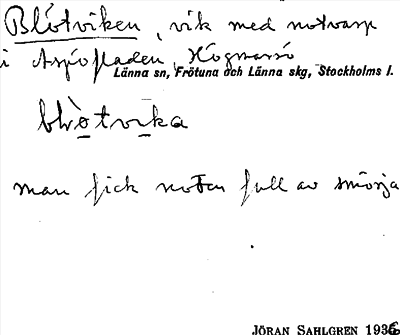 Blötviken, vik med notvarp
i Aspöfladen, Högmarsö
Länna sn, Frötuna och Länna skg, Stockholms l.
blö̀tvika
man fick noten full av smörja
JÖRAN SAHLGREN 1936